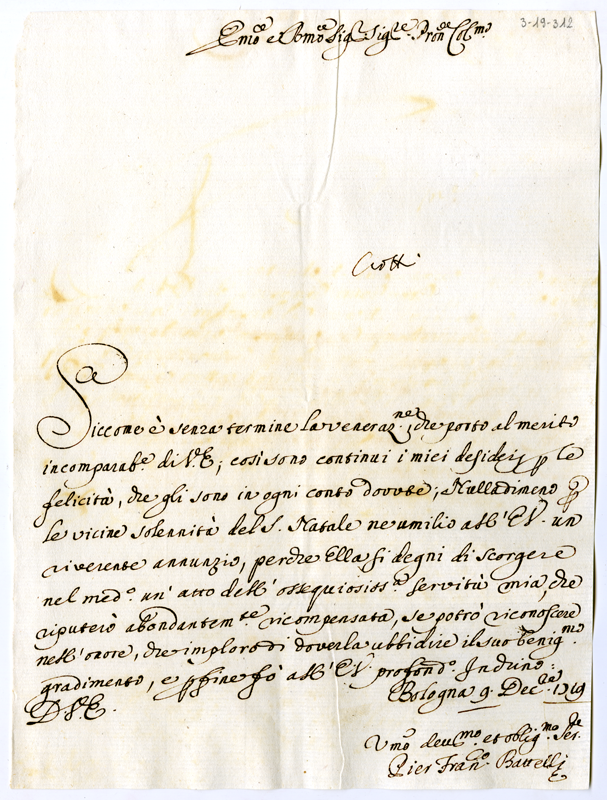 3-19-312
Emo e Rmo Sigr Sigre Prone Colmo
Ciotti
Siccome è senza termine la venerazne, che porto al merito
incomparabe di V.E; così sono continui i miei desiderj p le
felicità, che gli sono in ogni conto dovute; Nulladimeno p
le vicine solennità del S. Natale ne umilio all' E.V. un
riverente annunzio, perche Ella si degni di scorgere
nel medo un' atto dell' ossequiosissa servitù mia, che
riputerò abondantemte ricompensata, se potrò riconoscere
nell' onore, che imploro di doverla ubbidire il suo benigmo
gradimento, e p fine fò all' E.V. profondo Inchino:
Bologna 9 Decre 1719
D V.E.
Vmo deumo et obligmo Serre
Pier Franco Battelli